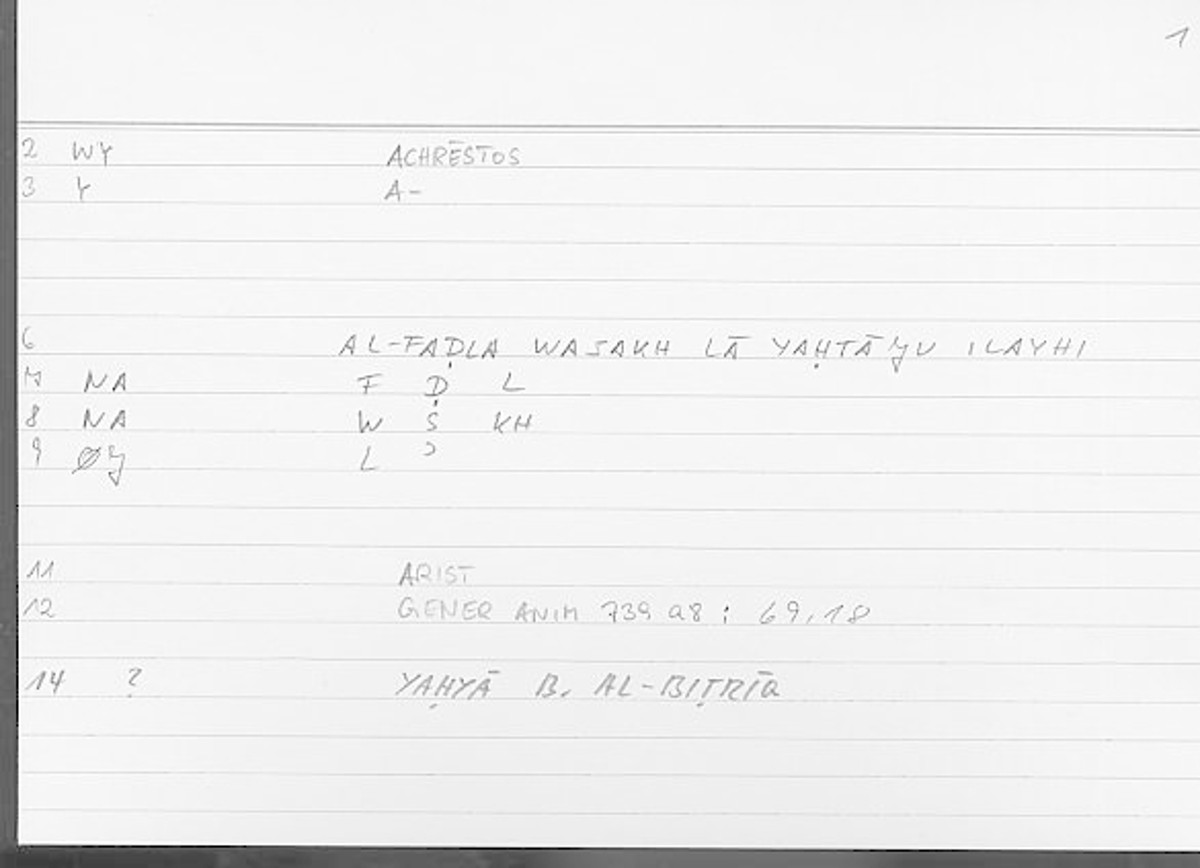 1
2 WY ACHRĒSTOS
3 Y A-
6 AL-FAḌLA WASAKH LĀ YAḤTĀǧU ILAYHI
7 NA F Ḍ L
8 NA W S KH
9 ØY L ʾ
11 ARIST
12 GENER ANIM 739 a8 : 69,18
14 ? YAḤYĀ B. AL-BIṬRĪQ